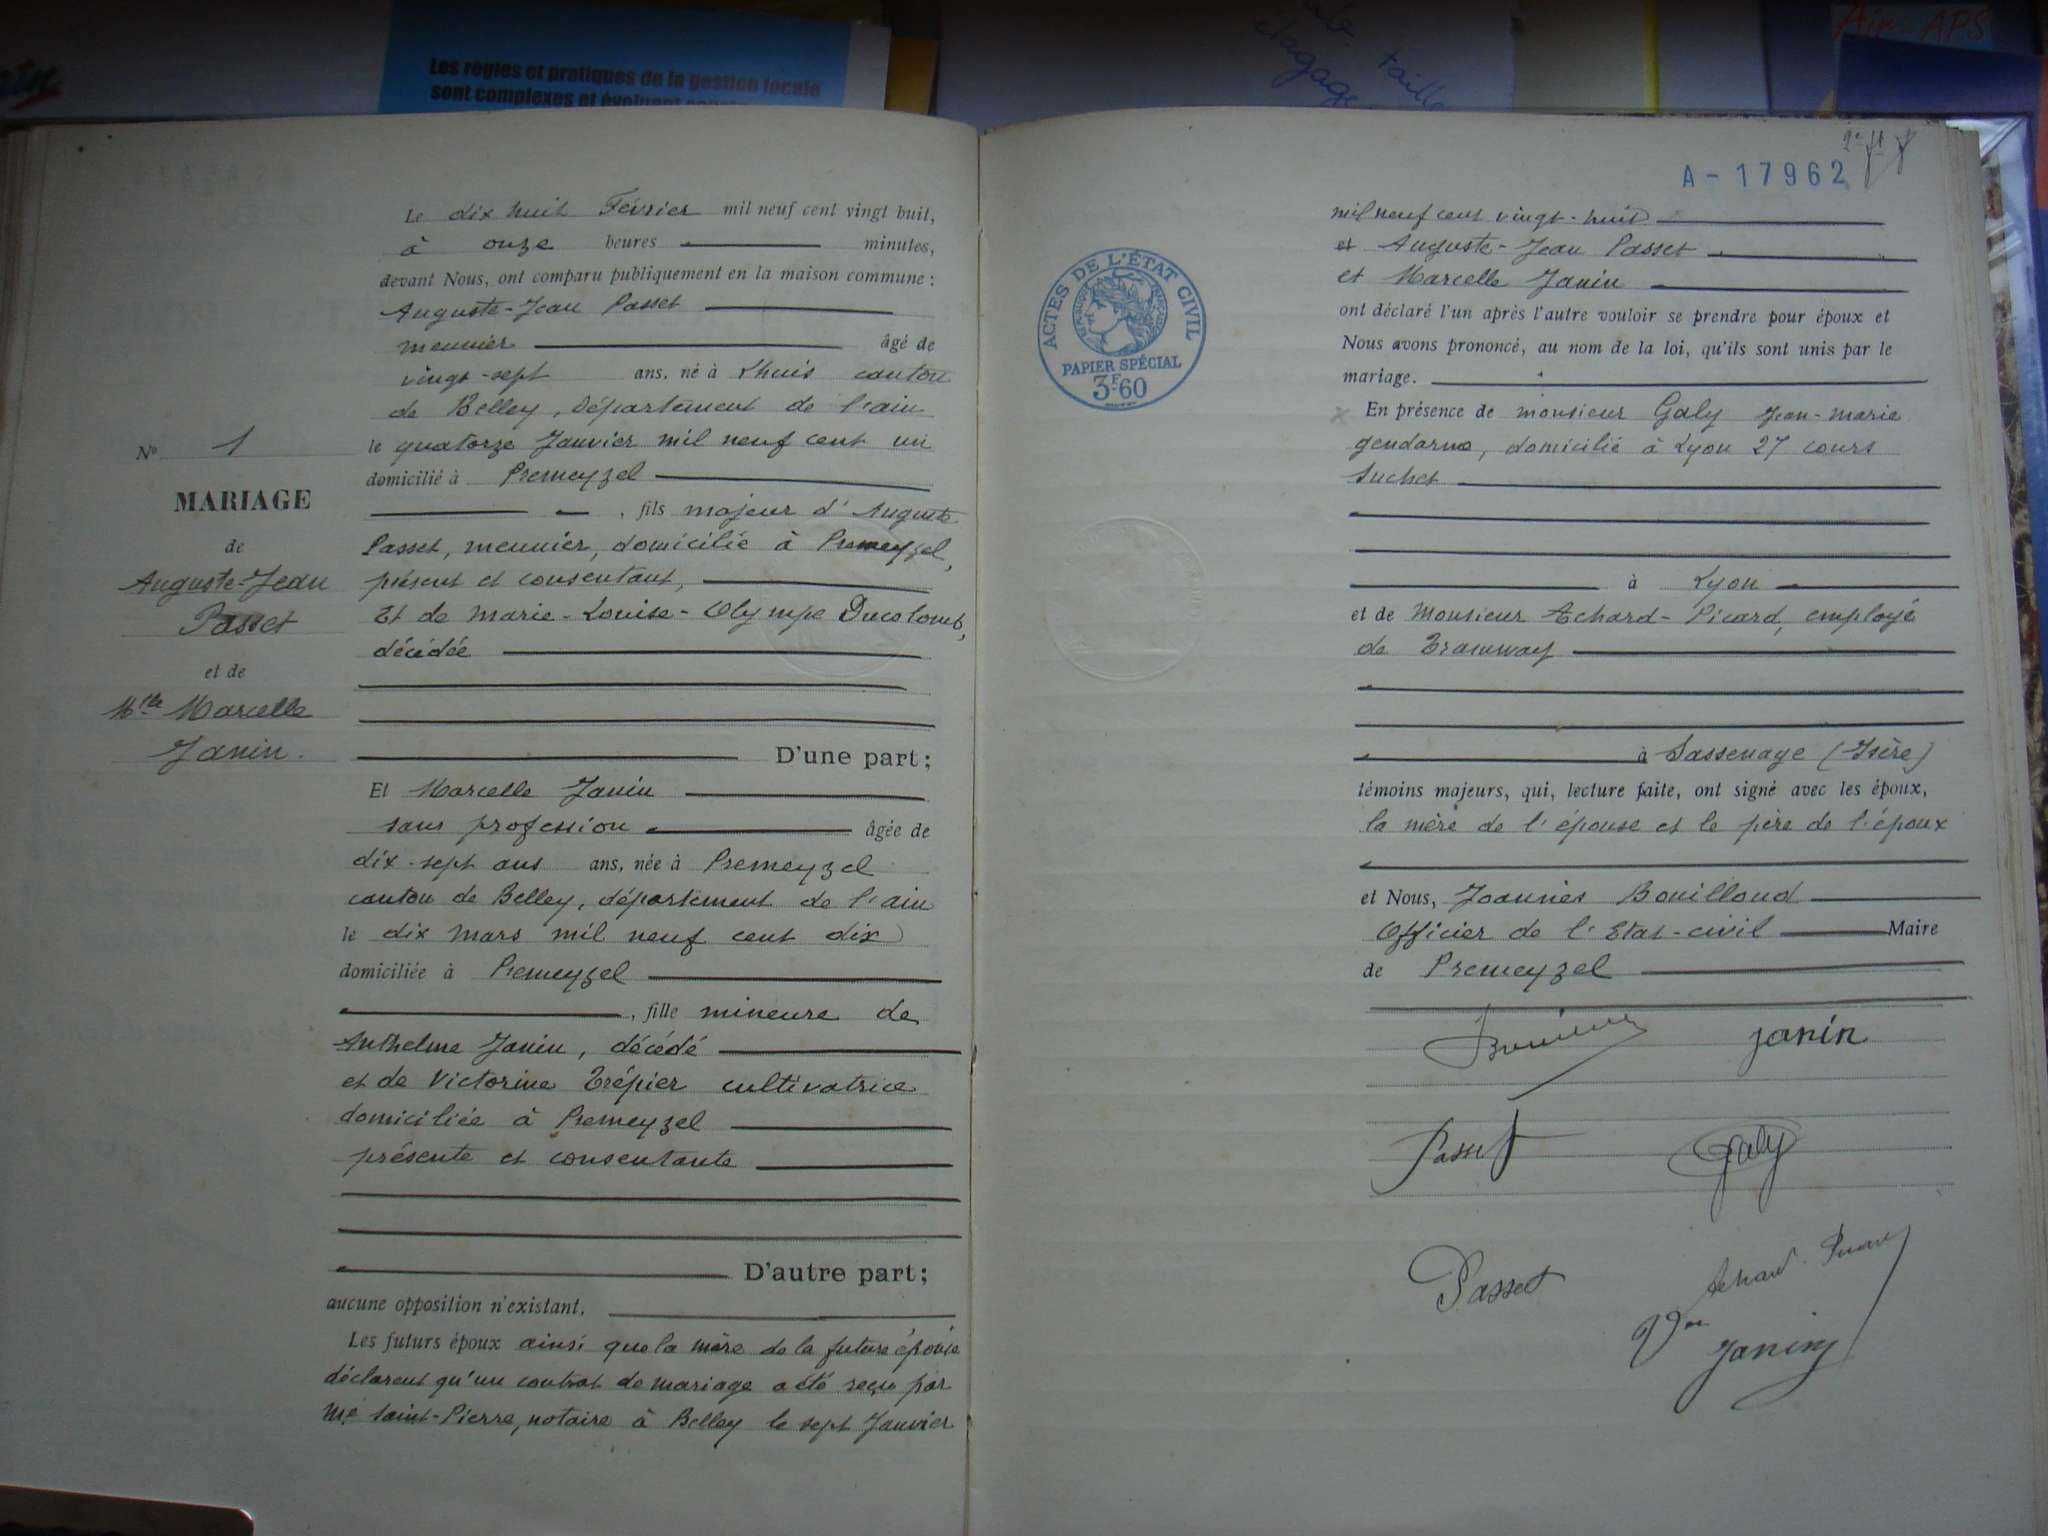 Les règles et pratiques de la gestion locale
sont complexes et évoluent
taille
élagage
Air-APS
N° 1
MARIAGE
de
Auguste-Jean
Passet
et de
Mlle Marcelle
Janin.
Le dix huit Février mil neuf cent vingt huit,
à onze heures minutes,
devant Nous, ont comparu publiquement en la maison commune :
Auguste-Jean Passet
meunier âgé de
vingt-sept ans, né à Lhuis canton
de Belley, Département de l'ain
le quatorze Janvier mil neuf cent un
domicilié à Premeyzel
, fils majeur d'Auguste
Passet, meunier, domicilié à Premeyzel,
présent et consentant,
Et de marie-Louise-Olympe Ducolomb,
décédée
D'une part;
Et Marcelle Janin
sans profession âgée de
dix-sept ans ans, née à Premeyzel
canton de Belley, département de l'ain
le dix mars mil neuf cent dix
domiciliée à Premeyzel
, fille mineure de
Anthelme Janin, décédé
et de Victorine Trépier cultivatrice
domiciliée à Premeyzel
présente et consentante
D'autre part;
aucune opposition n'existant.
Les futurs époux ainsi que la mère de la future épouse
déclarent qu'un contrat de mariage a été reçu par
Me Saint-Pierre, notaire à Belley le sept Janvier
A-17962
ACTES DE L'ÉTAT CIVIL
PAPIER SPÉCIAL
3F60
mil neuf cent vingt-huit
et Auguste-Jean Passet
et Marcelle Janin
ont déclaré l'un après l'autre vouloir se prendre pour époux et
Nous avons prononcé, au nom de la loi, qu'ils sont unis par le
mariage.
x En présence de monsieur Galy Jean-marie
gendarme, domicilié à Lyon 27 cours
Suchet
à Lyon
et de Monsieur Achard-Picard, employé
de Tramway
à Sassenage (Isère)
témoins majeurs, qui, lecture faite, ont signé avec les époux,
la mère de l'épouse et le père de l'époux
et Nous, Joannès Bouilloud
Officier de l'Etat-civil Maire
de Premeyzel
janin
Passet Galy
Passet Achard-Picard
Vve Janin